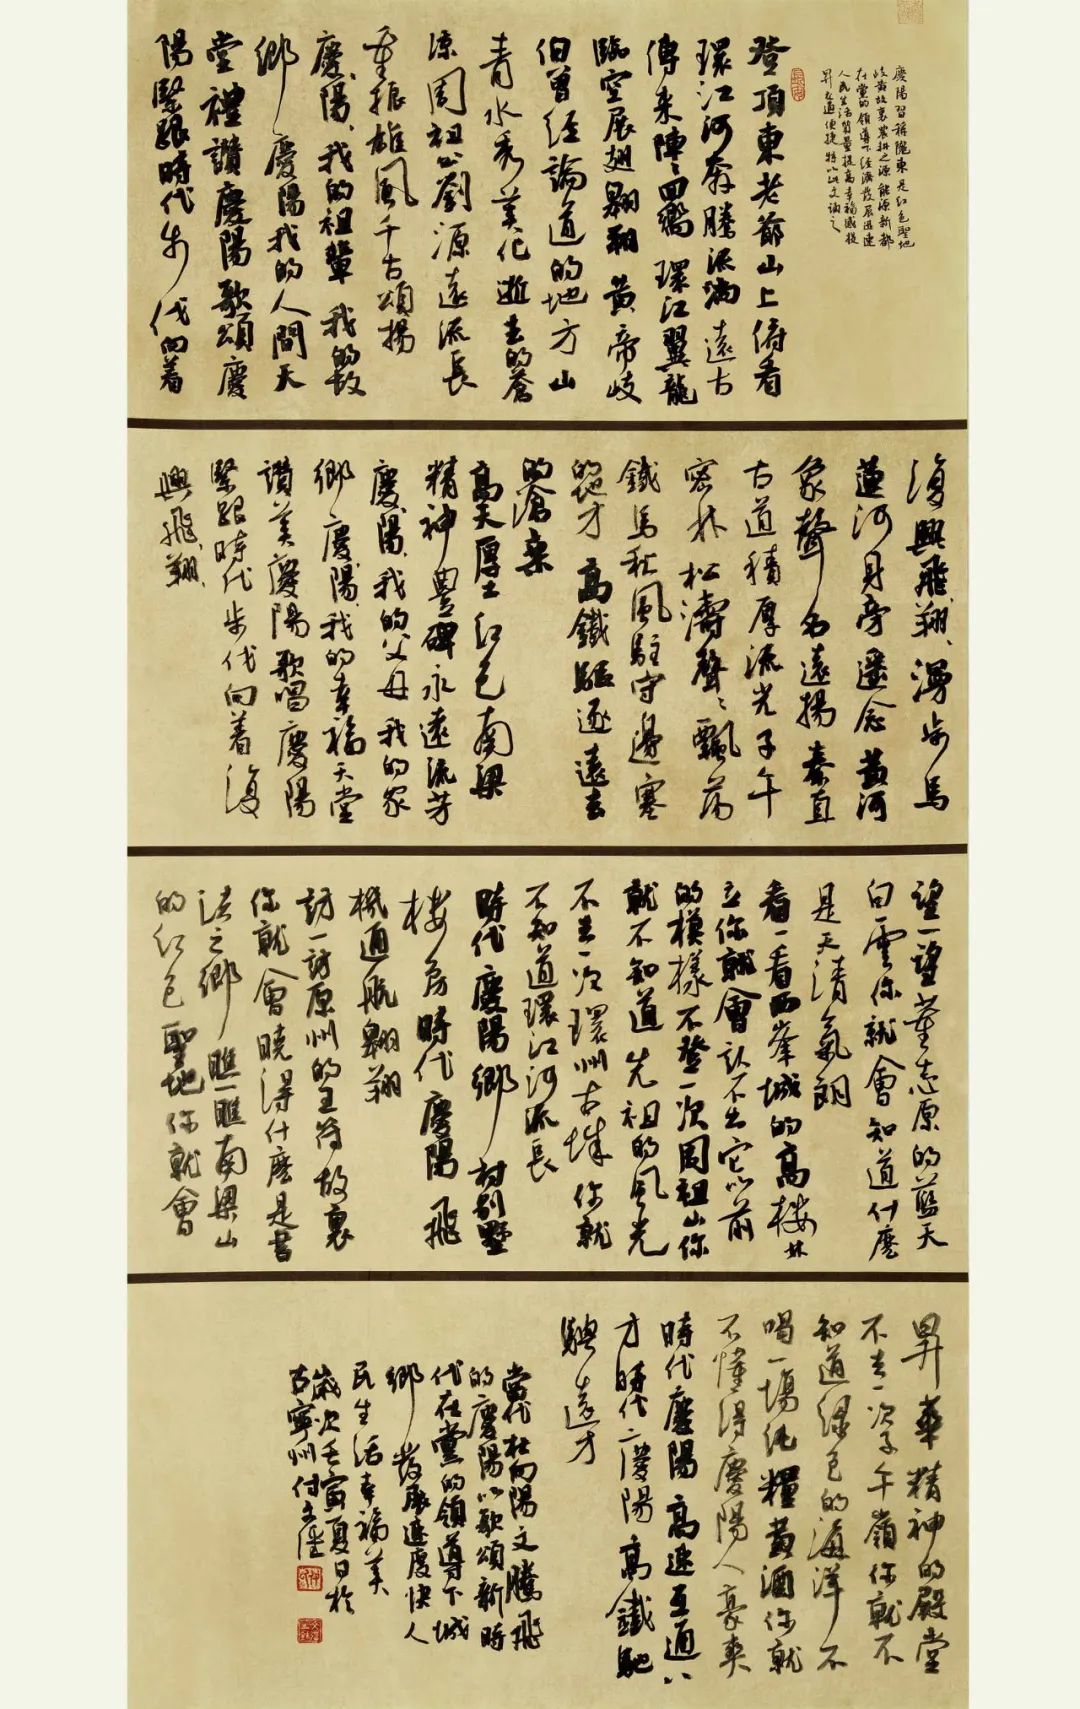 慶陽習稱隴東是紅色聖地
岐黃故里農耕之源能源新都
在黨的領導下經濟發展迅速
人民生活質量提高幸福感提
昇交通便捷特以此文誦之
登頂東老爺山上俯看
環江河奔騰流淌遠古
傳來陣陣回響環江翼龍
臨空展翅翱翔黃帝岐
伯曾經論道的地方山
青水秀美化逝去的蒼
涼周祖公劉源遠流長
重振雄風千古頌揚
慶陽我的祖輩我的故
鄉慶陽我的人間天
堂禮讚慶陽歌頌慶
陽緊跟時代步伐向着
復興飛翔漫步馬
蓮河身旁遥念黃河
象聲名遠揚秦直
古道積厚流光子午
密林松濤聲聲飄蕩
鐵馬秋風駐守邊塞
的地方高鐵驅逐遠去
的滄桑
高天厚土紅色南梁
精神豐碑永遠流芳
慶陽我的父母我的家
鄉慶陽我的幸福天堂
讚美慶陽歌唱慶陽
緊跟時代步伐向着復
興飛翔
望一望董志原的藍天
白雲你就會知道什麽
是天清氣朗
看一看西峯城的高樓林
立你就會認不出它以前
的模樣不登一次周祖山你
就不知道先祖的風光
不去一次環州古城你就
不知道環江河流長
時代慶陽鄉村别墅
樓房時代慶陽飛
機通航翱翔
訪一訪原州的王符故裏
你就會曉得什麽是書
法之鄉瞧一瞧南梁山
的紅色聖地你就會
昇華精神的殿堂
不去一次子午嶺你就不
知道綠色的海洋不
喝一場純糧黃酒你就
不懂得慶陽人豪爽
時代慶陽高速互通八
方時代慶陽高鐵馳
騁遠方
當代杜向陽文騰飛
的慶陽以歌頌新時
代在黨的領導下城
鄉發展速度快人
民生活幸福美
歲次壬寅夏日於
古寧州付